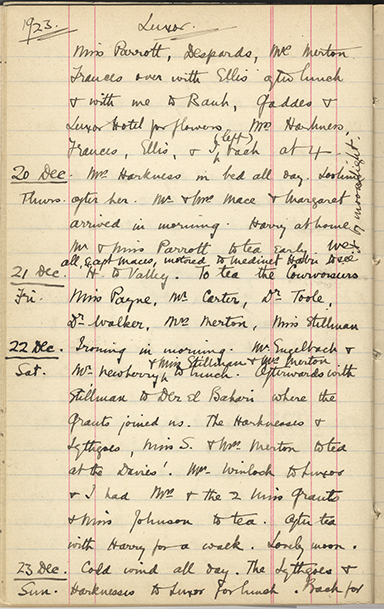 1923. Luxor.
Miss Parrott, Despards, Mr Merton.
Frances over with Ellis after lunch
& with me to Bank, Gaddes &
Luxor Hotel for flowers. Mrs Harkness,
Frances, Ellis, & I (left) back at 4.
20 Dec. Mrs Harkness in bed all day. Looking
Thurs. after her. Mr & Mrs Mace & Margaret
arrived in morning. Harry at home.
Mr & Miss Parrott to tea early. We
all, except Maces, motored to Medinet Habu to see
it by moonlight.
21 Dec. H. to Valley. To tea the Courvoisiers
Fri. Miss Payne, Mr Carter, Dr Toole,
Dr Walker, Mrs Merton, Miss Stillman
22 Dec. Ironing in morning. Mr Engelbach &
Sat. Mr Newberry & Miss Stillman & Mr Merton to lunch. Afterwards with
Stillman to Der el Bahari where the
Grants joined us. The Harknesses &
Lythgoes, Miss S. & Mrs Merton to tea
at the Davies'. Mr Winlock to Luxor
& I had Mrs & the 2 Miss Grants
& Miss Johnson to tea. After tea
with Harry for a walk. Lovely moon.
23 Dec. Cold wind all day. The Lythgoes &
Sun. Harknesses to Luxor for lunch. Back for